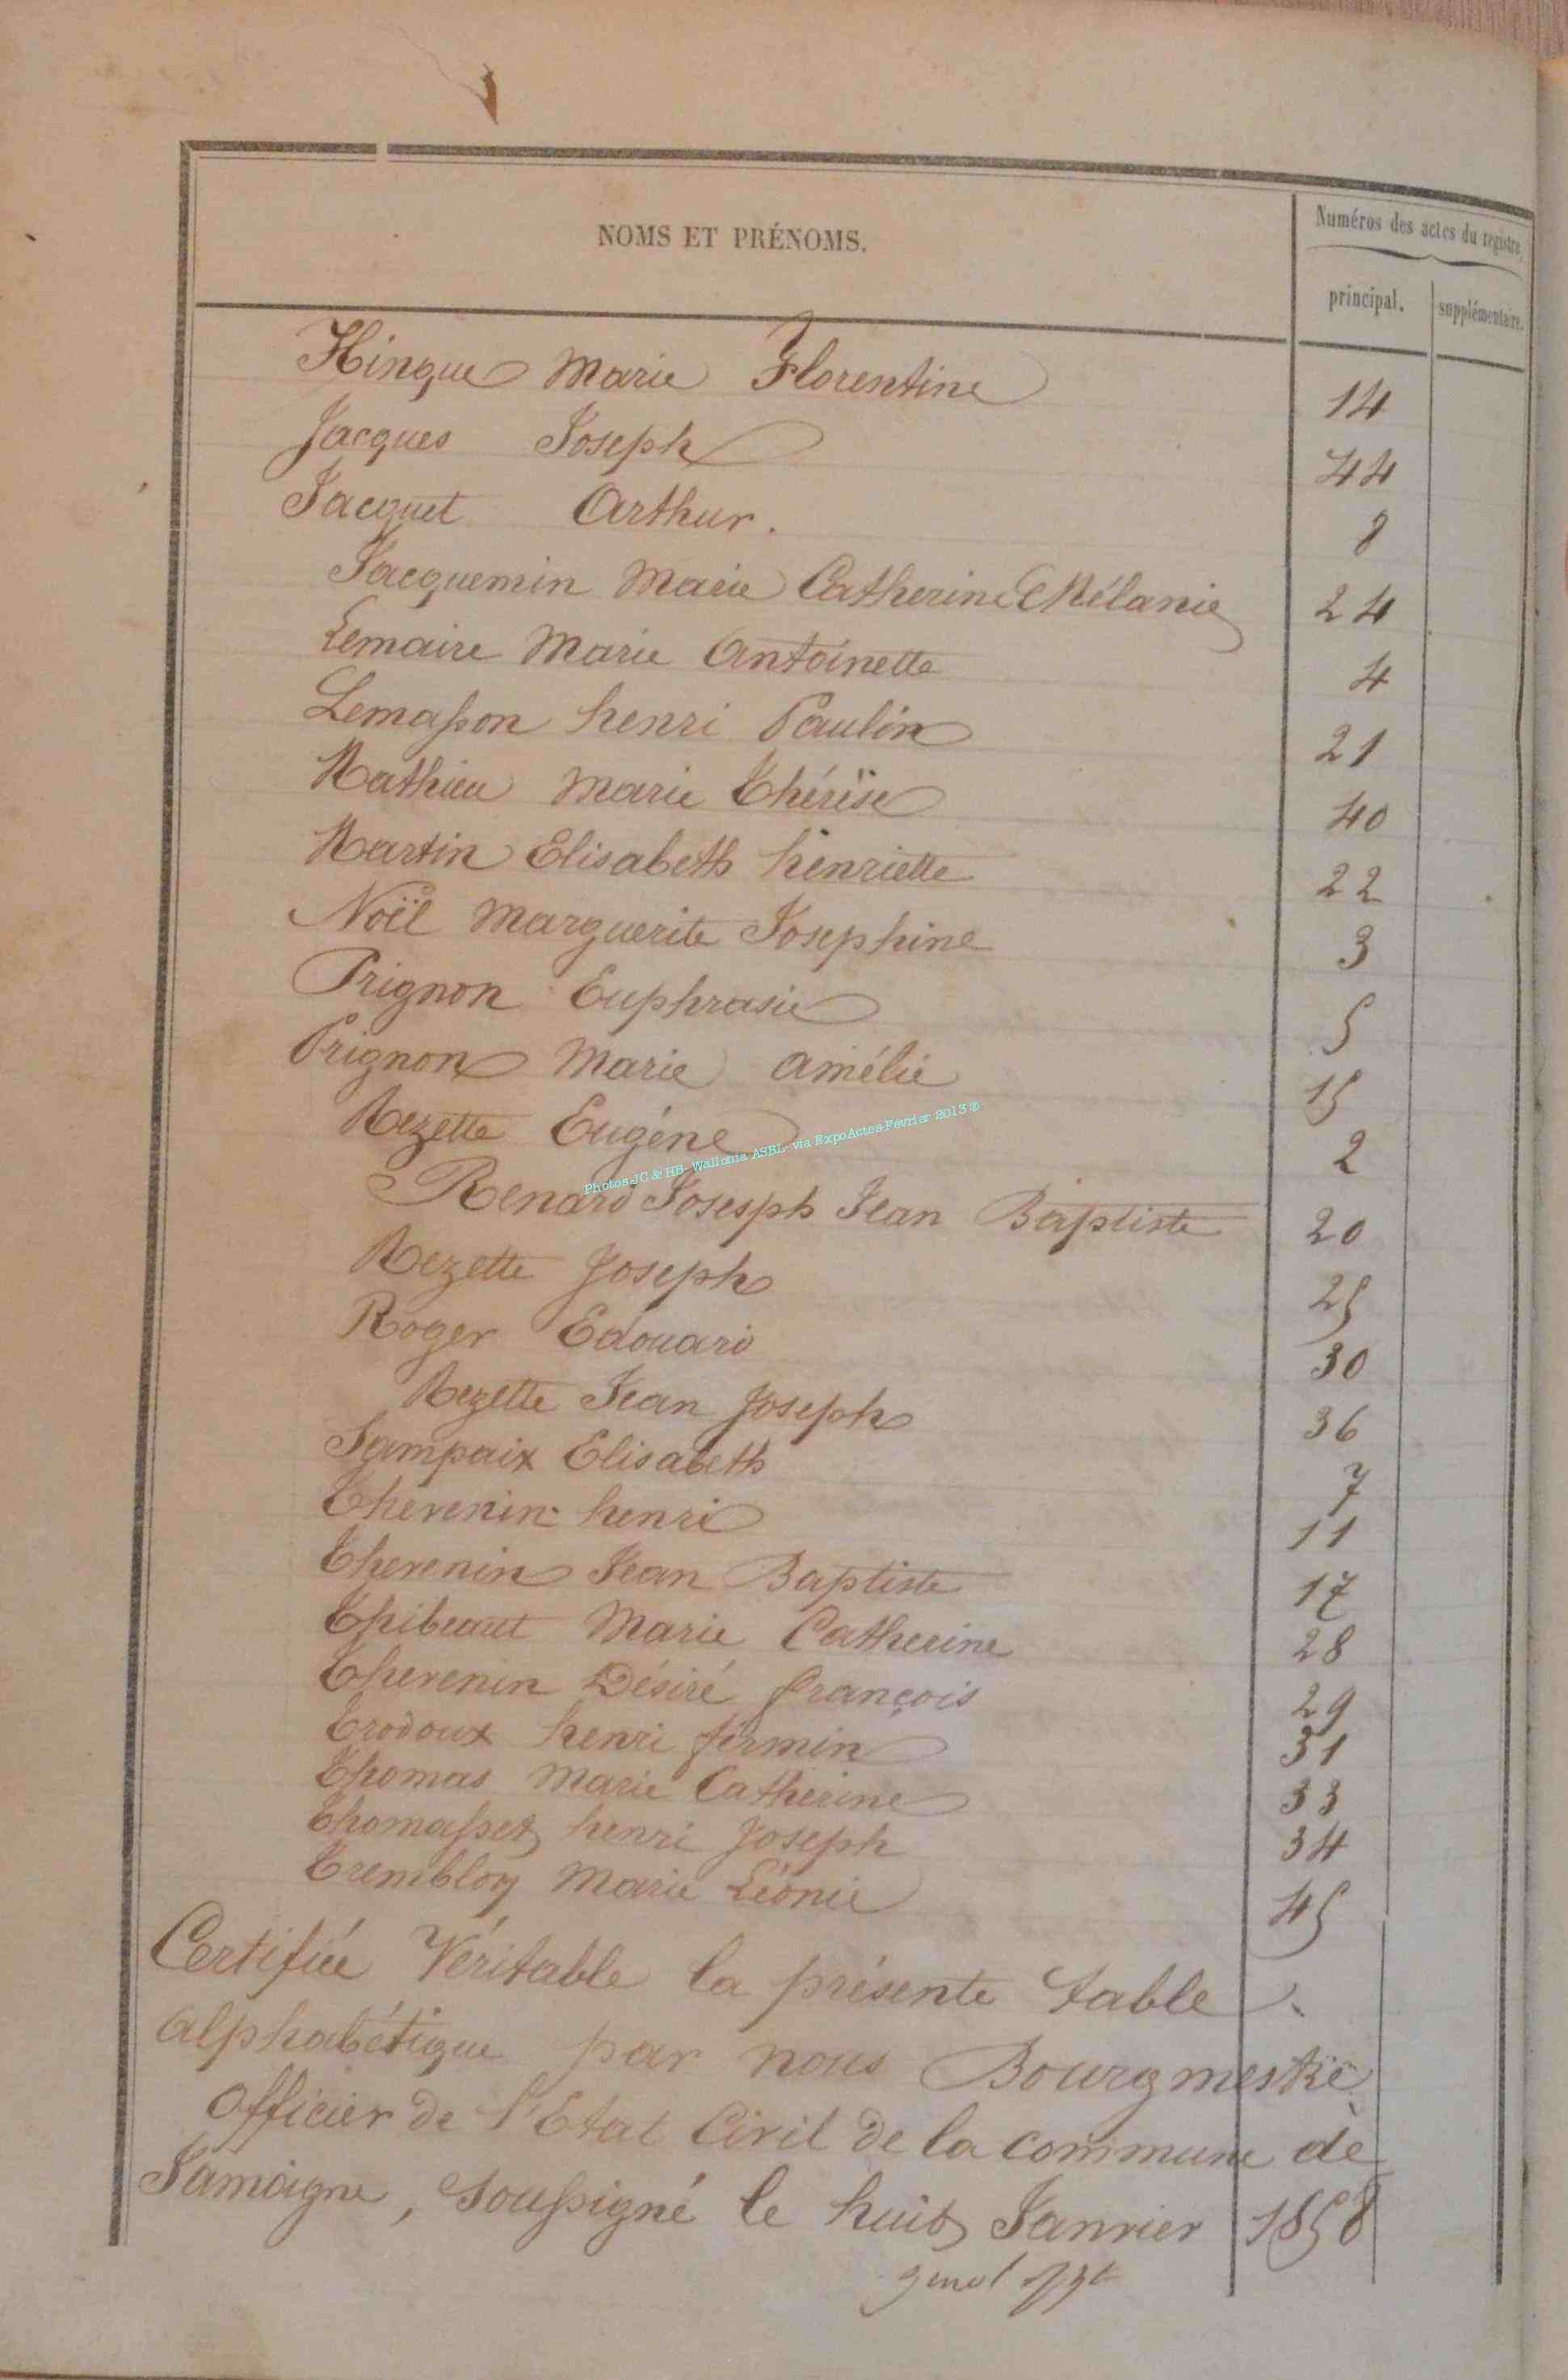 NOMS ET PRÉNOMS.
Numéros des actes du registre
principal.
supplémentaire.
Hinque Marie Florentine 14
Jacques Joseph 44
Jacquet Arthur. 8
Jacquemin Marie Catherine Mélanie 24
Lemaire Marie Antoinette 4
Lemasson henri Paulin 21
Mathieu Marie Thérèse 40
Martin Elisabeth henriette 22
Noël Marguerite Josephine 3
Prignon Euphrasie 5
Prignon Marie Amélie 15
Rezette Eugéne 2
Photos JC & HB- Wallonia ASBL- via ExpoActes-Février 2013 ®
Renard Josesph Jean Baptiste 20
Rezette Joseph 25
Roger Edouard 30
Rezette Jean Joseph 36
Sampaix Elisabeth 7
Thevenin henri 11
Thevenin Jean Baptiste 17
Thibeaut Marie Catherine 28
Thevenin Désiré françois 29
Trodoux henri firmin 31
Thomas Marie Catherine 33
Thomasset henri Joseph 34
Trembloy Marie Léonie 45
Certifiée Véritable la présente table
alphabétique par nous Bourgmestre
officier de l'Etat Civil de la commune de
Jamoigne, soussigné le huit Janvier 1858